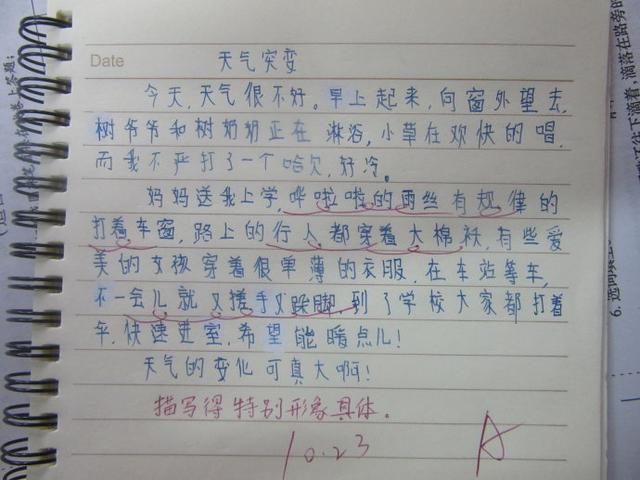 Date
天气突变
今天,天气很不好。早上起来,向窗外望去,
树爷爷和树奶奶正在淋浴,小草在欢快的唱,
而我不严打了一个哈欠,好冷。
妈妈送我上学,哗啦啦的雨丝有规律的
打着车窗,路上的行人都穿着大棉袄,有些爱
美的女孩穿着很单薄的衣服,在车站等车,
不一会儿就又搓手又跺脚,到了学校大家都打着
伞,快速进室,希望能暖点儿!
天气的变化可真大啊!
描写得特别形象具体。
10.23 A
6.